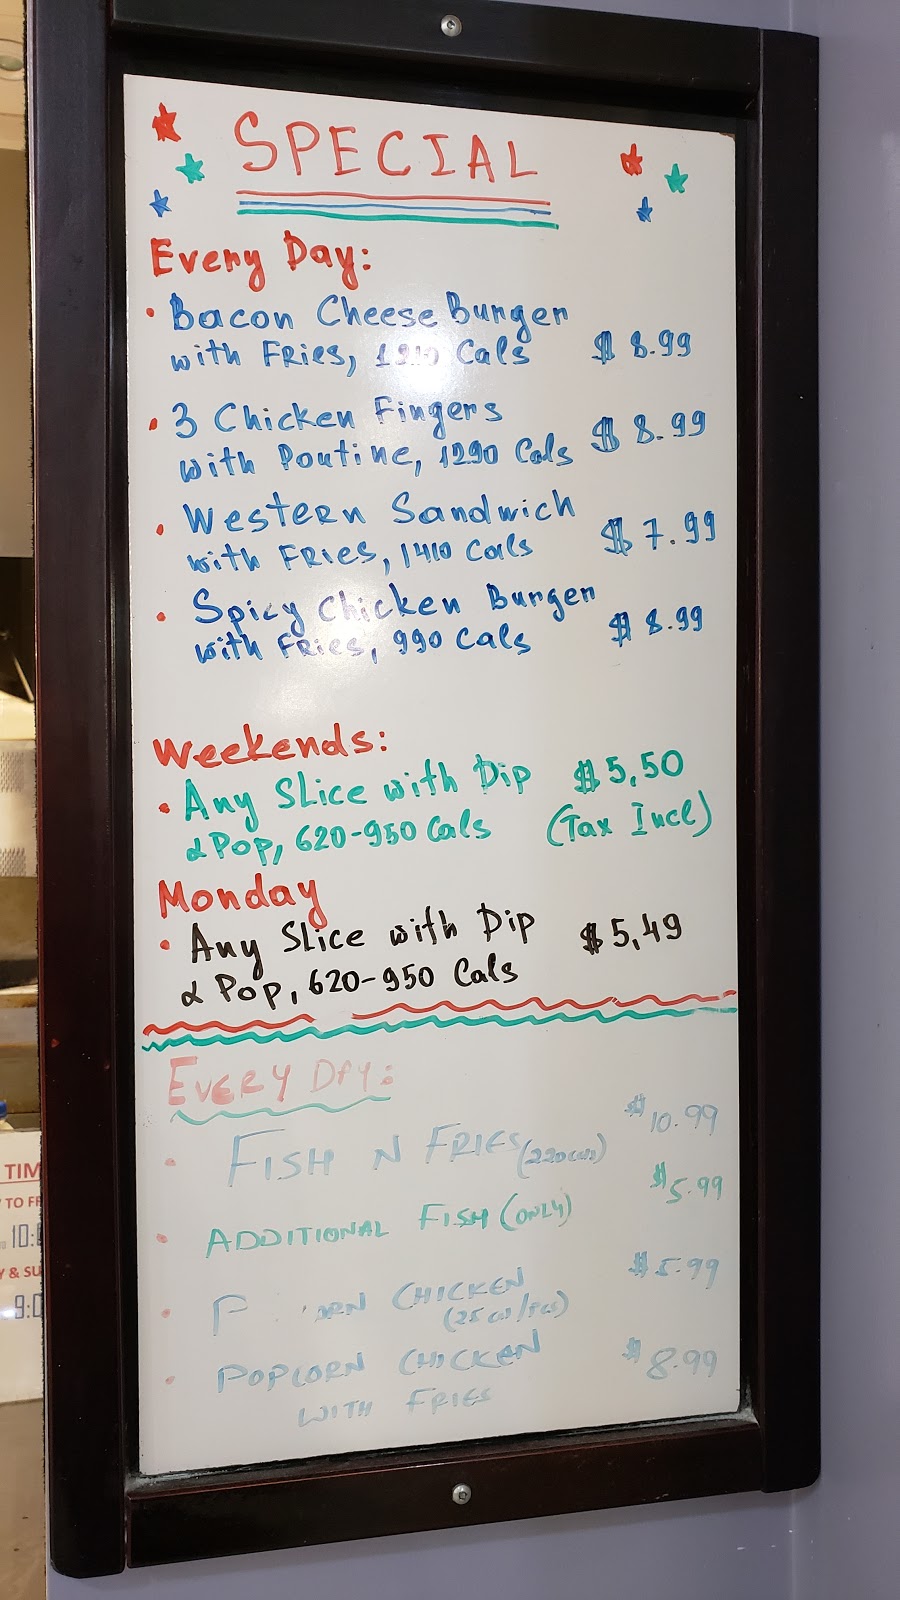 SPECIAL
Every Day:
• Bacon Cheese Burger
with Fries, Cals $ 8.99
• 3 Chicken Fingers
with Poutine, 1290 Cals $ 8.99
• Western Sandwich
with Fries, 1410 Cals $ 7.99
• Spicy Chicken Burger
with Fries, 990 Cals $ 8.99
Weekends:
• Any Slice with Dip $ 5,50
& Pop, 620-950 Cals (Tax Incl)
Monday
• Any Slice with Dip $ 5,49
& Pop, 620-950 Cals
EVERY DAY:
• FISH N FRIES $ 10.99
• ADDITIONAL FISH (ONLY) $ 5.99
• CHICKEN $ 5.99
• POPCORN CHICKEN $ 8.99
WITH FRIES
TIM
10:
9:0